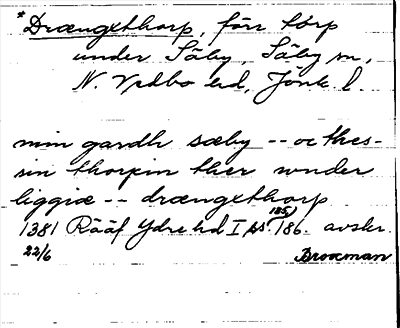 * Drængxthorp, förr torp
under Säby, Säby sn,
N. Vedbo hd, Jönk. l.
min gardh sæby -- oc thes-
sin thorpin ther wnder
liggiæ -- drængxthorp
1381 Rääf Ydre hd I ss. 185, 186. avskr.
22/6 Broxman